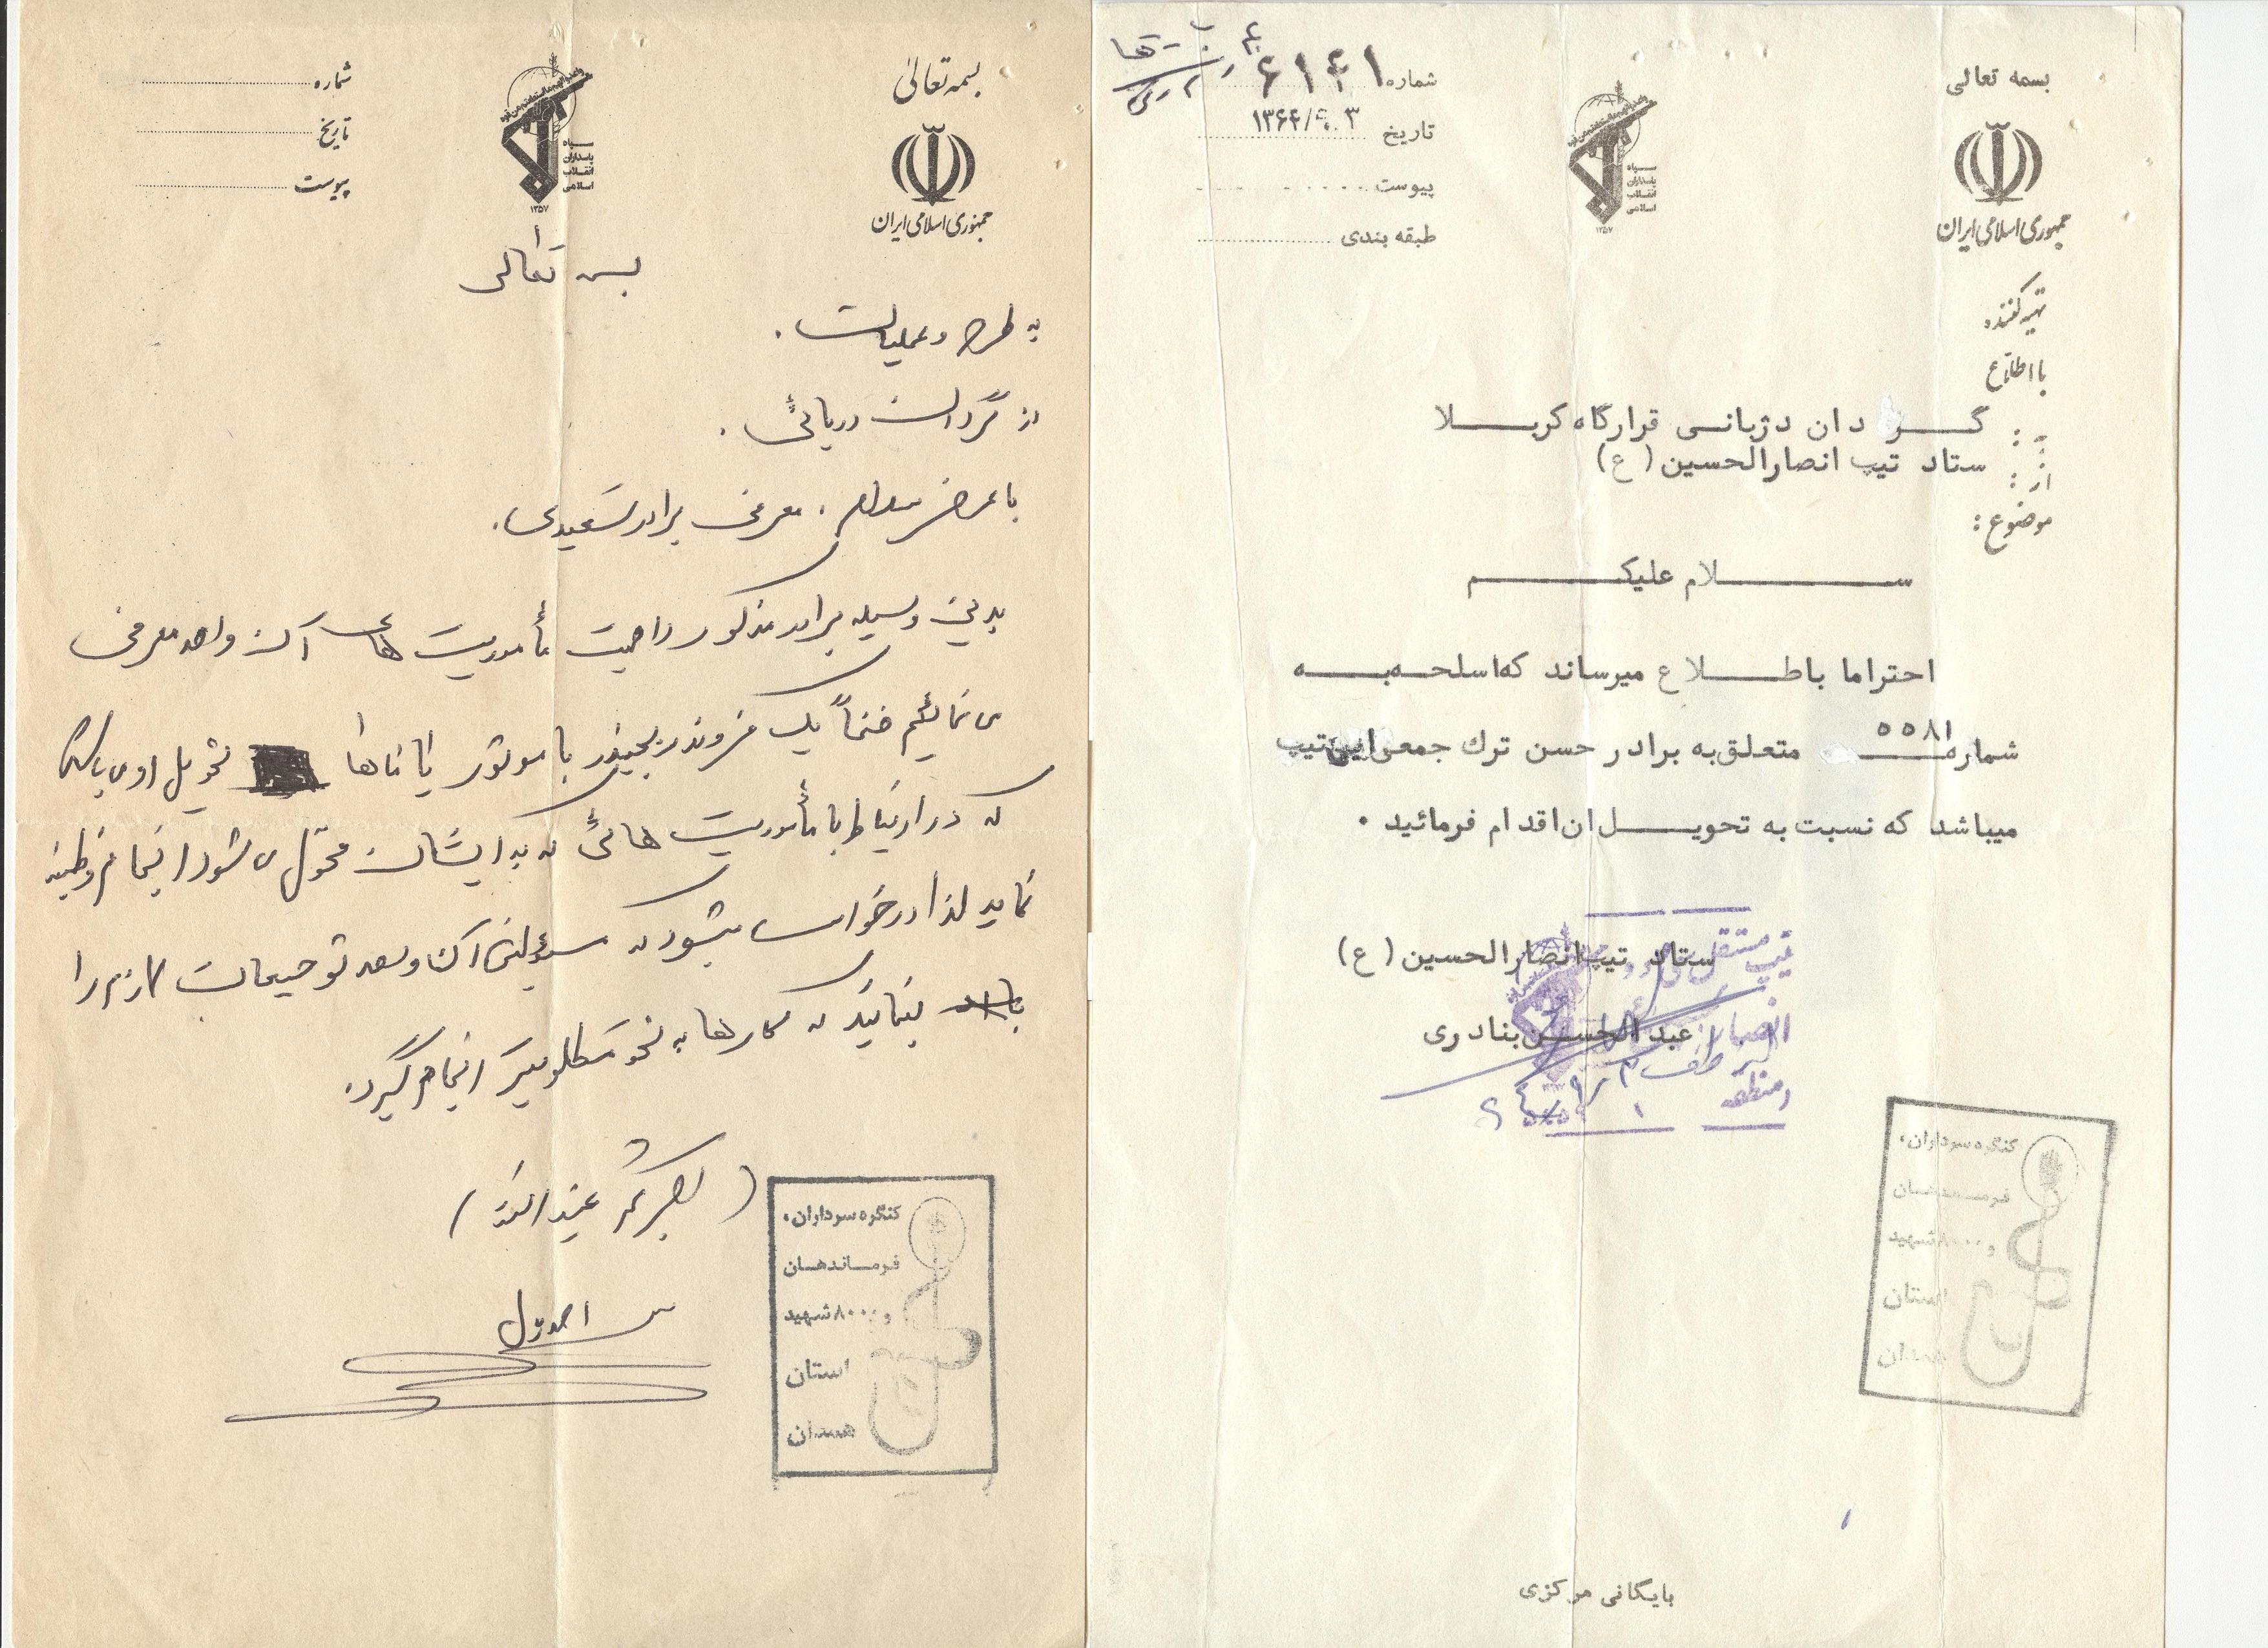 بسمه تعالی
جمهوری اسلامی ایران
شماره ۶۱۴۱
تاریخ ۱۳۶۴/۹.۳
پیوست
طبقه بندی
سپاه
پاسداران
انقلاب
اسلامی
۱۳۵۷
تهیه کننده
با اطلاع
به : گردان دژبانی قرارگاه کربلا
از : ستاد تیپ انصارالحسین (ع)
موضوع :
سلام علیکم
احتراما باطلاع میرساند که اسلحه به
شماره ۵۵۸۱ متعلق به برادر حسن ترك جمعی این تیپ
میباشد که نسبت به تحویل ان اقدام فرمائید .
ستاد تیپ انصارالحسین (ع)
عبدالحسین بنادری
تیپ مستقل
انصار
منطقه ۱
کنگره سرداران،
فرماندهان
و ۸۰۰۰ شهید
استان
همدان
بایگانی مرکزی
بسمه تعالی
جمهوری اسلامی ایران
شماره
تاریخ
پیوست
سپاه
پاسداران
انقلاب
اسلامی
۱۳۵۷
بسمه تعالی
به طرح و عملیات .
از گردان دریائی .
با عرض سلام . معرفی برادر سعیدی .
بدین وسیله برادر مذکور را جهت مأموریت های آن واحد معرفی
می نمائیم ضمناً یک فروند با موتور یاماها تحویل او می باشد
که در ارتباط با مأموریت هائی که به ایشان محول می شود انجام وظیفه
نماید لذا درخواست میشود که مسئولین آن واحد توجیهات لازم را
بنمایند که کارها به نحو مطلوبتر انجام گیرد.
کنگره سرداران،
فرماندهان
و ۸۰۰۰ شهید
استان
همدان